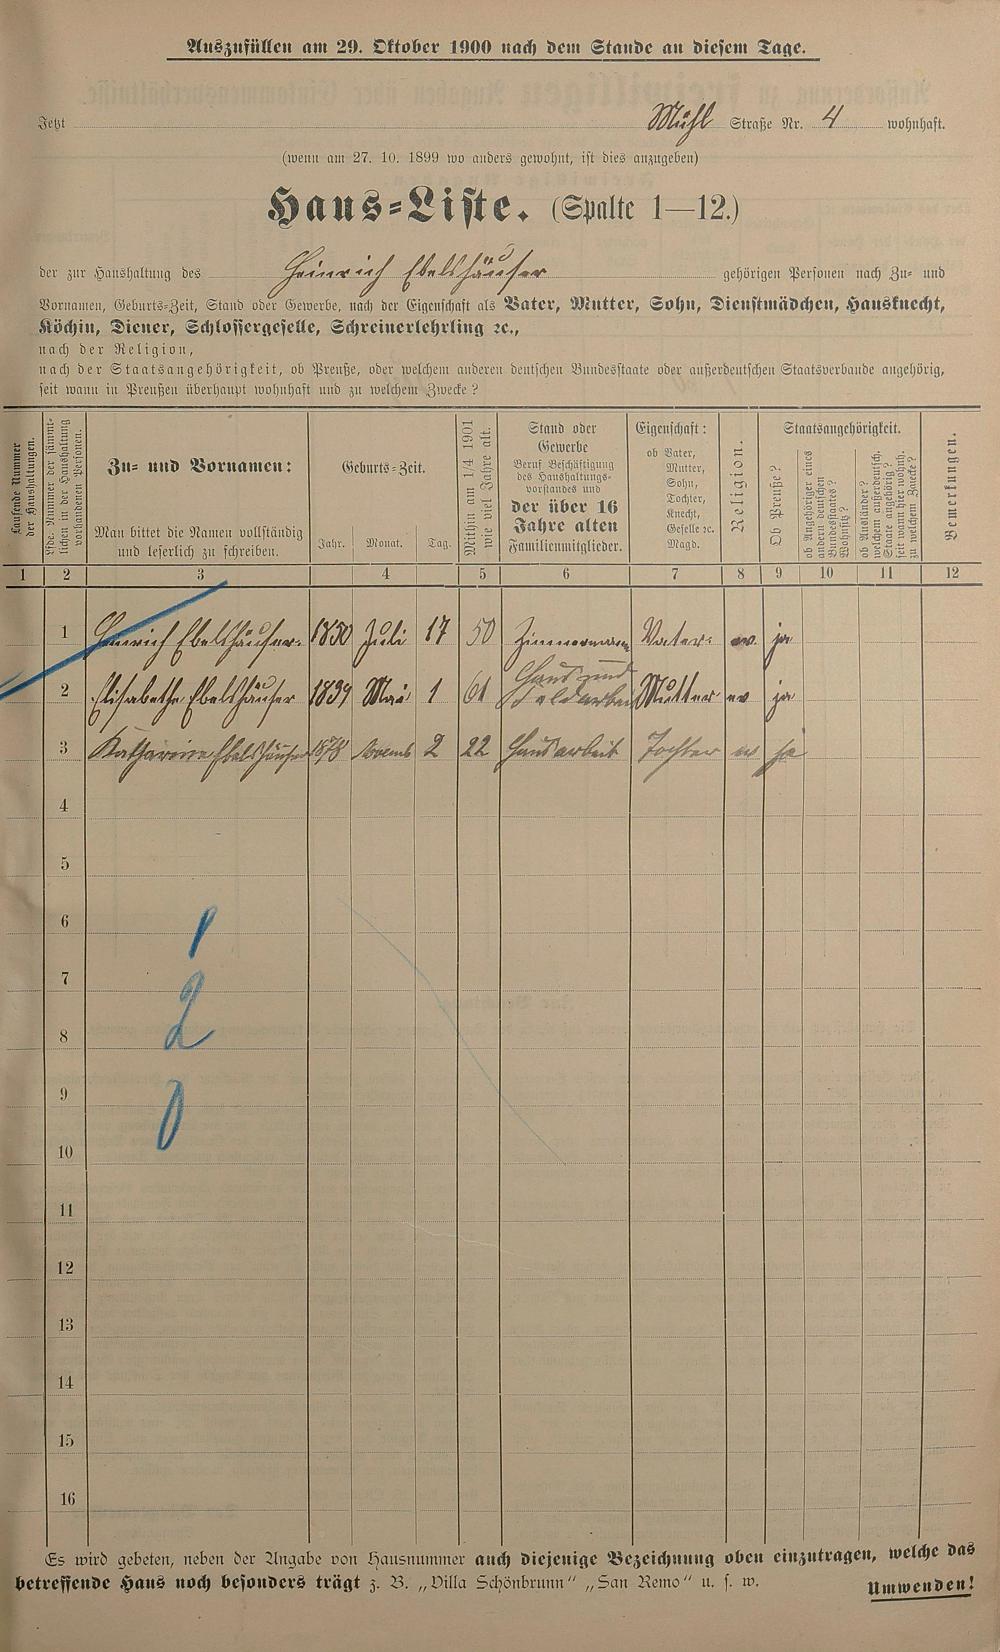 Auszufüllen am 29. Oktober 1900 nach dem Stande an diesem Tage.
Jetzt Mühl Straße Nr. 4 wohnhaft.
(wenn am 27. 10. 1899 wo anders gewohnt, ist dies anzugeben)
Haus-Liste. (Spalte 1—12.)
der zur Haushaltung des Heinrich Ebelshäuser gehörigen Personen nach Zu- und
Vornamen, Geburts-Zeit, Stand oder Gewerbe, nach der Eigenschaft als Vater, Mutter, Sohn, Dienstmädchen, Hausknecht,
Köchin, Diener, Schlossergeselle, Schreinerlehrling ꝛc.,
nach der Religion,
nach der Staatsangehörigkeit, ob Preuße, oder welchem anderen deutschen Bundesstaate oder außerdeutschen Staatsverbande angehörig,
seit wann in Preußen überhaupt wohnhaft und zu welchem Zwecke?
Laufende Nummer
der Haushaltungen.
Lfde. Nummer der sämmt-
lichen in der Haushaltung
vorhandenen Personen.
Zu- und Vornamen:
Man bittet die Namen vollständig
und leserlich zu schreiben.
Geburts-Zeit.
Jahr. Monat. Tag.
Mithin am 1/4 1901
wie viel Jahre alt.
Stand oder
Gewerbe
Beruf Beschäftigung
des Haushaltungs-
vorstandes und
der über 16
Jahre alten
Familienmitglieder.
Eigenschaft:
ob Vater,
Mutter,
Sohn,
Tochter,
Knecht,
Geselle ꝛc.
Magd.
Religion.
Staatsangehörigkeit.
Ob Preuße?
ob Angehöriger eines
andern deutschen
Bundesstaates?
Wohnsitz?
ob Ausländer?
welchem außerdeutsch.
Staate angehörig?
seit wann hier wohnh.
zu welchem Zwecke?
Bemerkungen.
1 2 3 4 5 6 7 8 9 10 11 12
1 Heinrich Ebelshäuser. 1850 Juli 17 50 Zimmermann Vater. ev. ja
2 Elisabetha Ebelshäuser 1839 Mai 1 61 Haus und Feldarbeit Mutter ev ja
3 Katharine Ebelshäuser 1878 2 22 Hausarbeit Tochter ev ja
4
5
6
1
7
2
8
9
0
10
11
12
13
14
15
16
Es wird gebeten, neben der Angabe von Hausnummer auch diejenige Bezeichnung oben einzutragen, welche das
betreffende Haus noch besonders trägt z. B. „Villa Schönbrunn" „San Remo" u. s. w.
Umwenden!